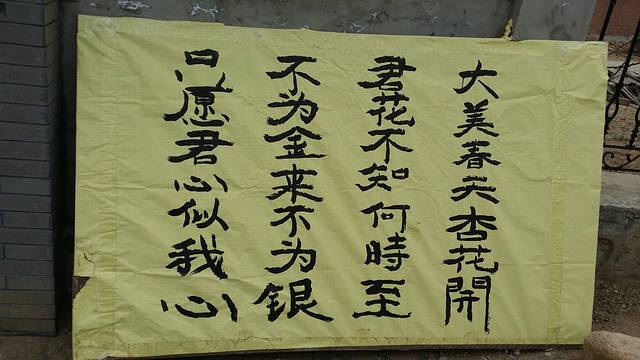 大美春天杏花開
君花不知何時至
不为金来不为银
只愿君心似我心